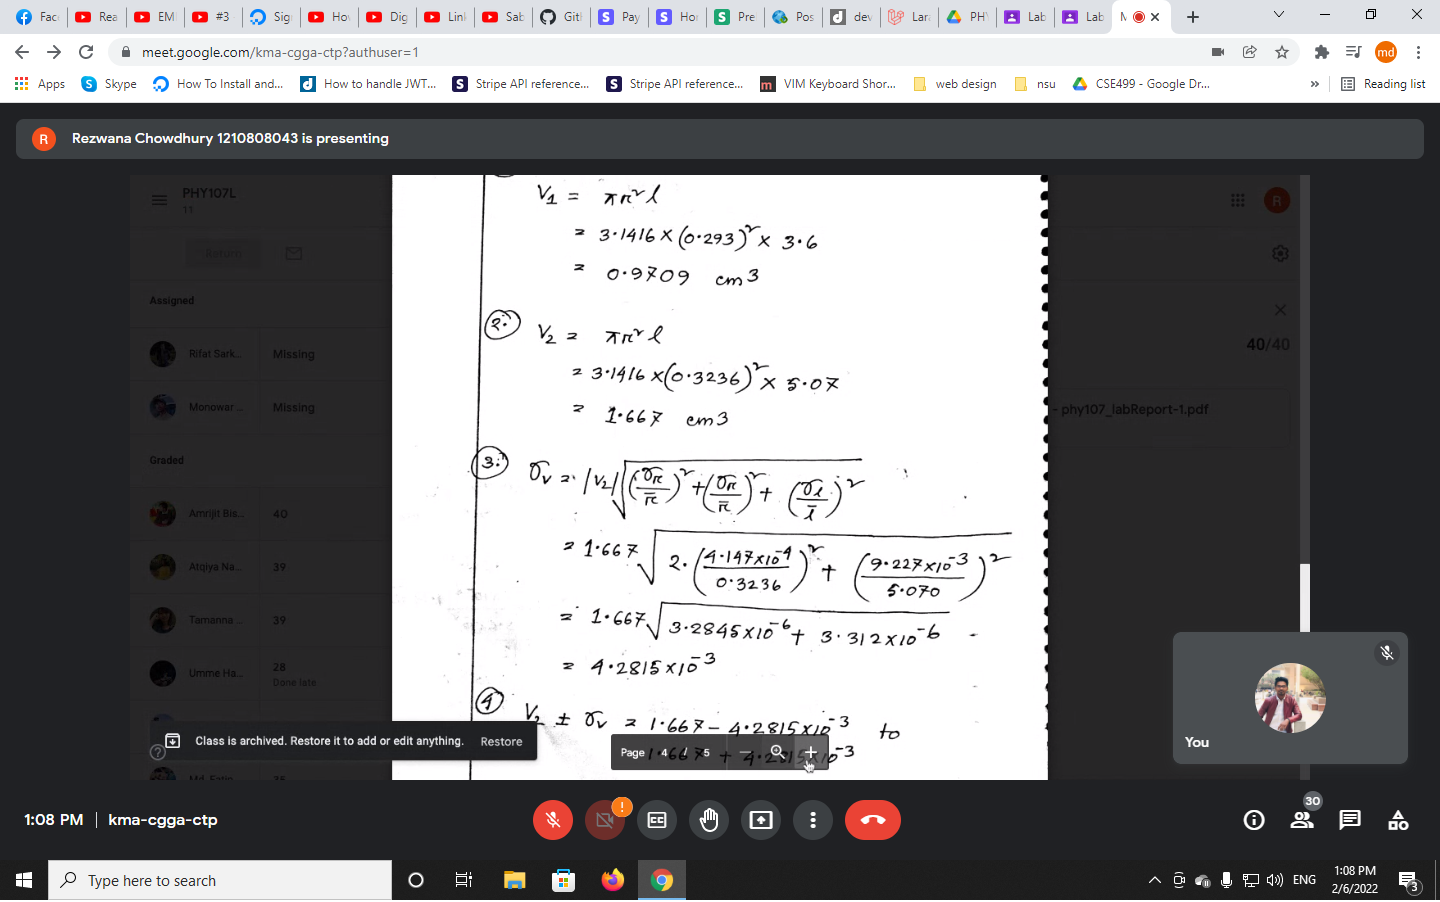 Fac
Rea
EMI
#3
Sig
Hov
Dig
Lin
Sab
Gith
Pay
Hor
Pre
Pos
dev
Lar
PHY
Lab
Lab
M
meet.google.com/kma-cgga-ctp?authuser=1
md
Apps
Skype
How To Install and...
How to handle JWT...
Stripe API reference...
Stripe API reference...
VIM Keyboard Shor...
web design
nsu
CSE499 - Google Dr...
»
Reading list
R Rezwana Chowdhury 1210808043 is presenting
PHY107L
11
R
Return
Assigned
Rifat Sark... Missing
Monowar ... Missing
Graded
Amrijit Bis... 40
Atqiya Na... 39
Tamanna ... 39
Umme Ha... 28
Done late
Md. Fatin 35
40/40
- phy107_labReport-1.pdf
V1 = πr²l
= 3.1416 × (0.293)² × 3.6
= 0.9709 cm3
2. V2 = πr²l
= 3.1416 × (0.3236)² × 5.07
= 1.667 cm3
3. σv = |V2| √((σr/r̄)² + (σr/r̄)² + (σl/l̄)²)
= 1.667 √(2.(4.147×10⁻⁴/0.3236)² + (9.227×10⁻³/5.070)²)
= 1.667 √(3.2845×10⁻⁶ + 3.312×10⁻⁶)
= 4.2815×10⁻³
4 V2 ± σv = 1.667 - 4.2815×10⁻³ to
1.667 + 4.2815×10⁻³
Class is archived. Restore it to add or edit anything. Restore
Page 4 / 5
You
1:08 PM | kma-cgga-ctp
30
Type here to search
ENG
1:08 PM
2/6/2022
3